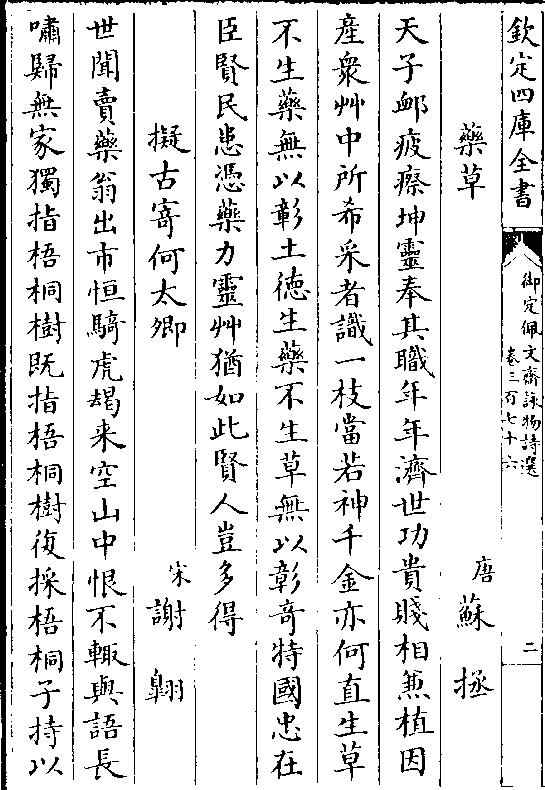 欽定四庫全書
御定佩文齋詠物詩選
卷三百七十六
二
藥草
唐 蘇拯
天子䘏疲瘵坤靈奉其職年年濟世功貴賤相兼植因
產衆艸中所希采者識一枝當若神千金亦何直生草
不生藥無以彰土德生藥不生草無以彰竒特國忠在
臣賢民患憑藥力靈艸猶如此賢人豈多得
擬古寄何太卿
宋 謝翺
世聞賣藥翁出市恒騎虎朅来空山中恨不輙與語長
嘯歸無家獨指梧桐樹既指梧桐樹復採梧桐子持以